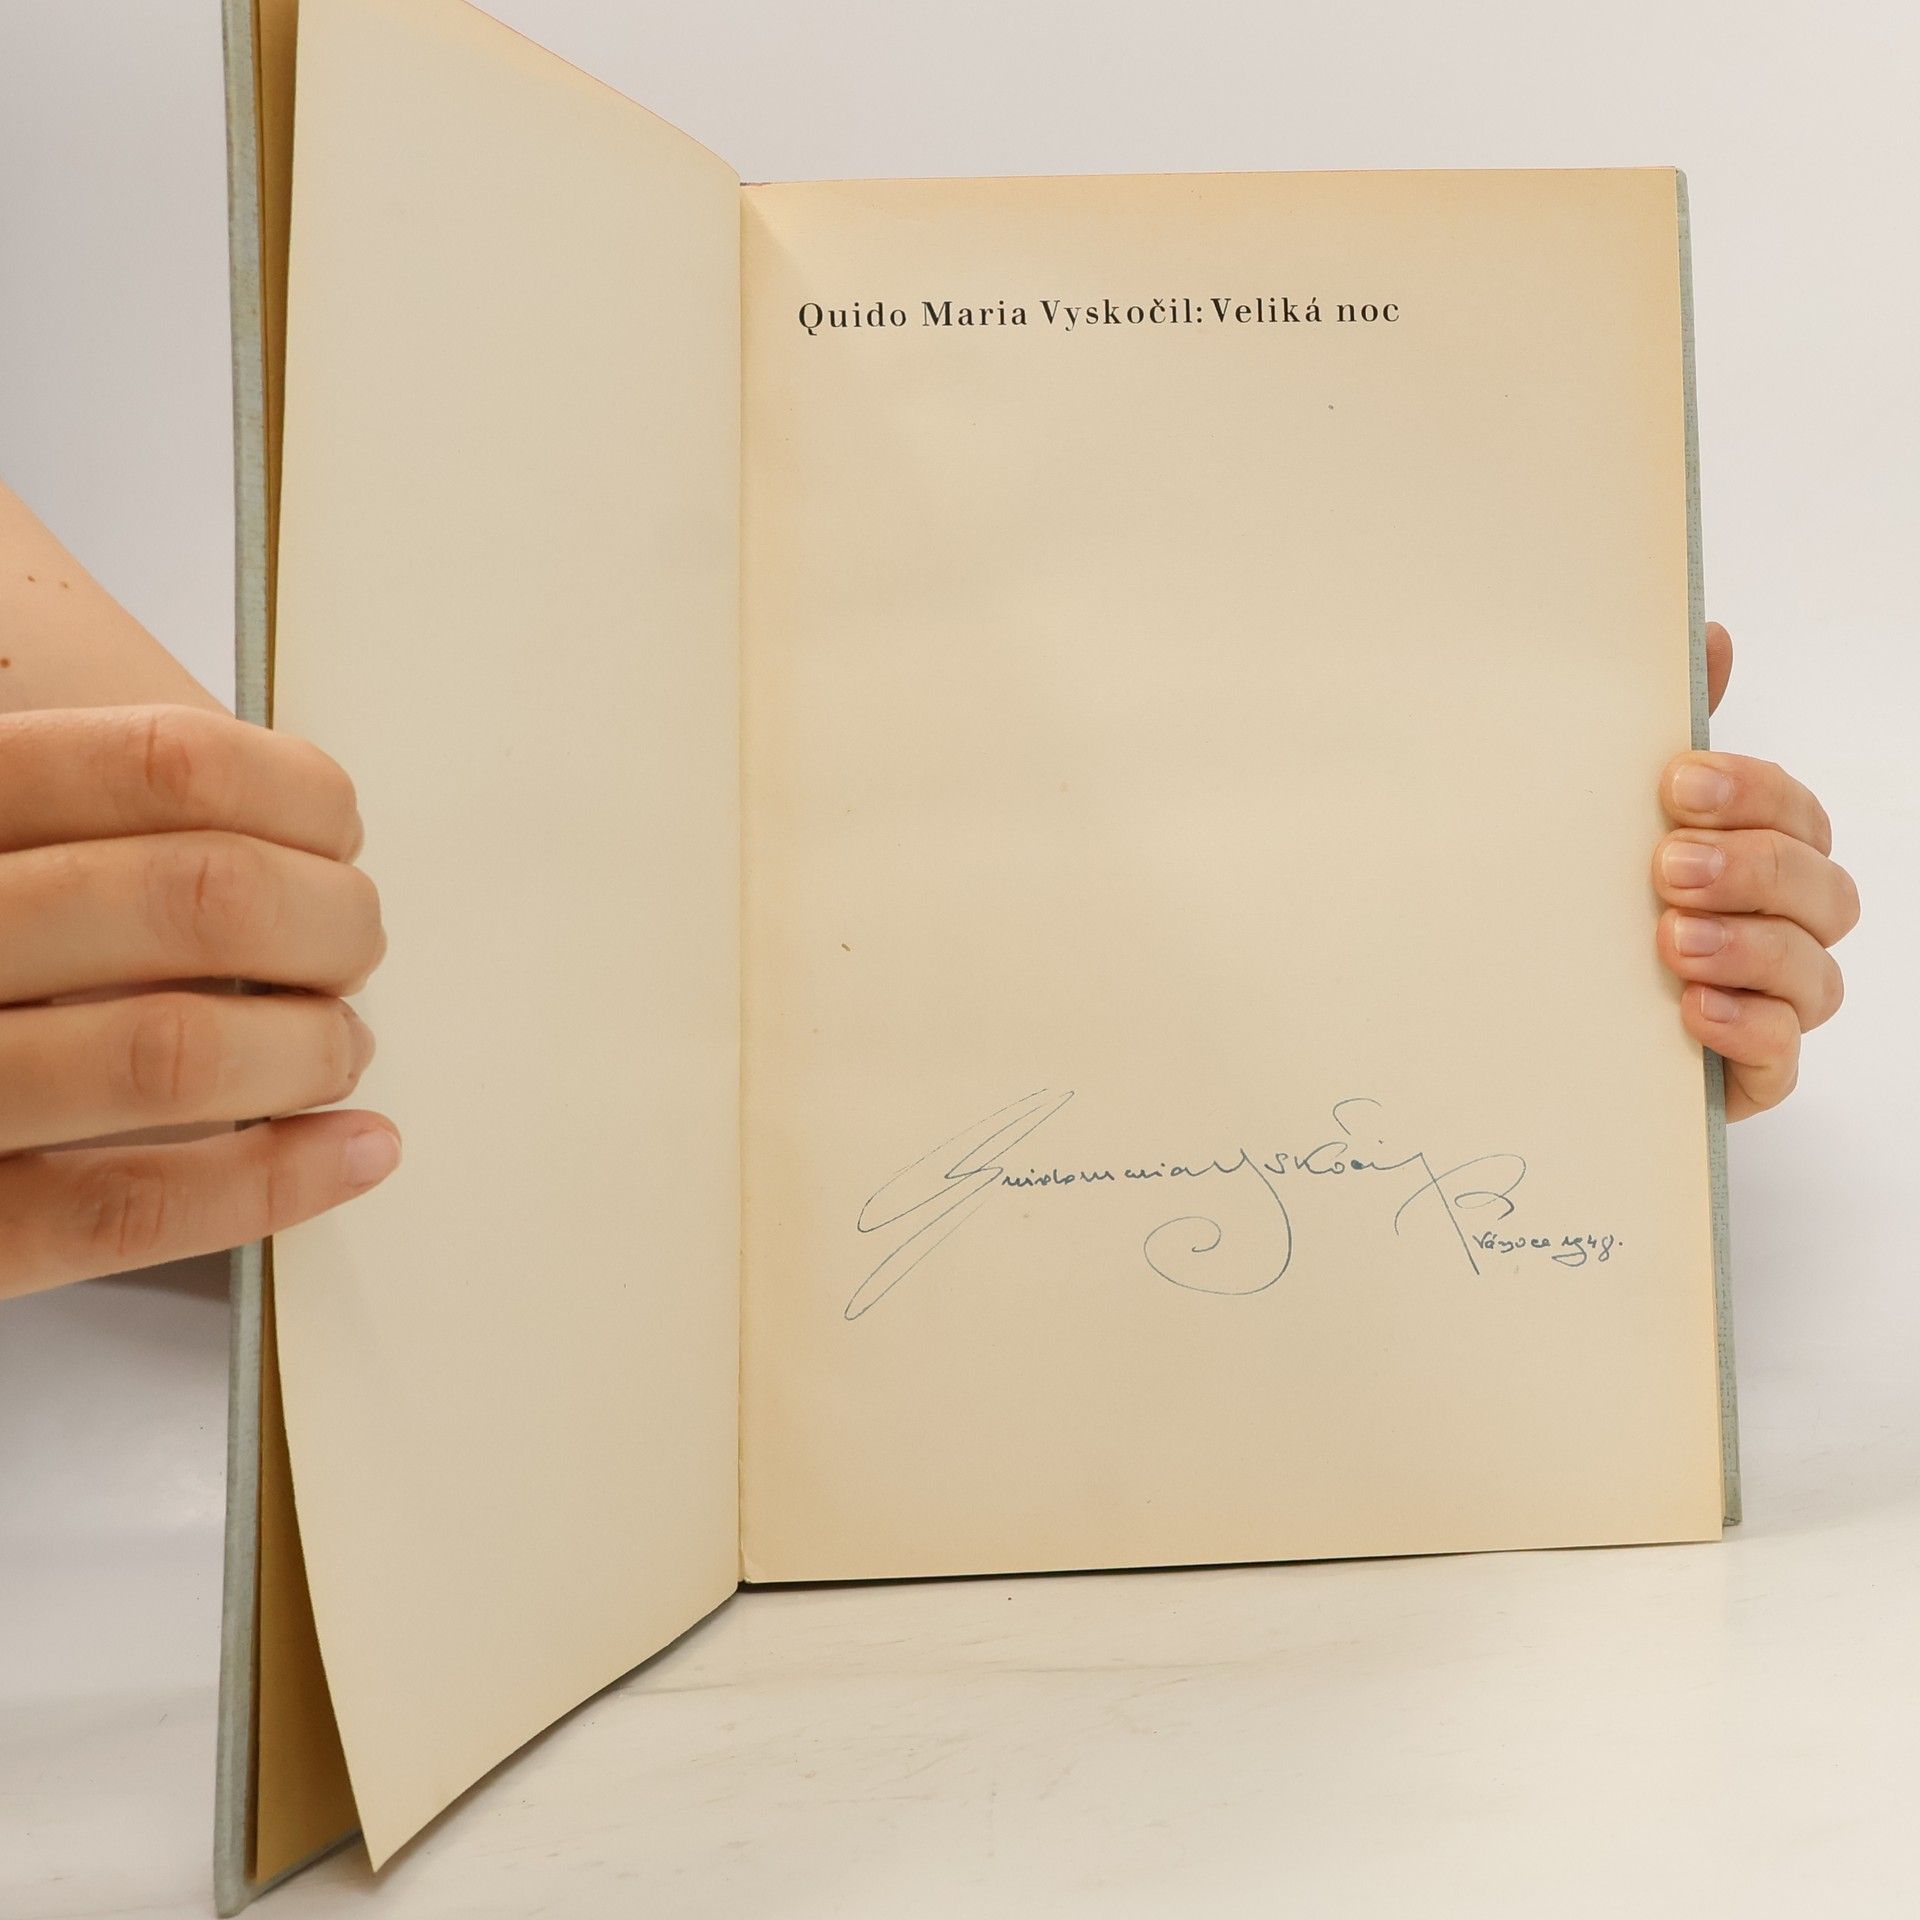 Quido Maria Vyskočil: Veliká noc
Quidomaria Vyskočil
Vánoce 1948.